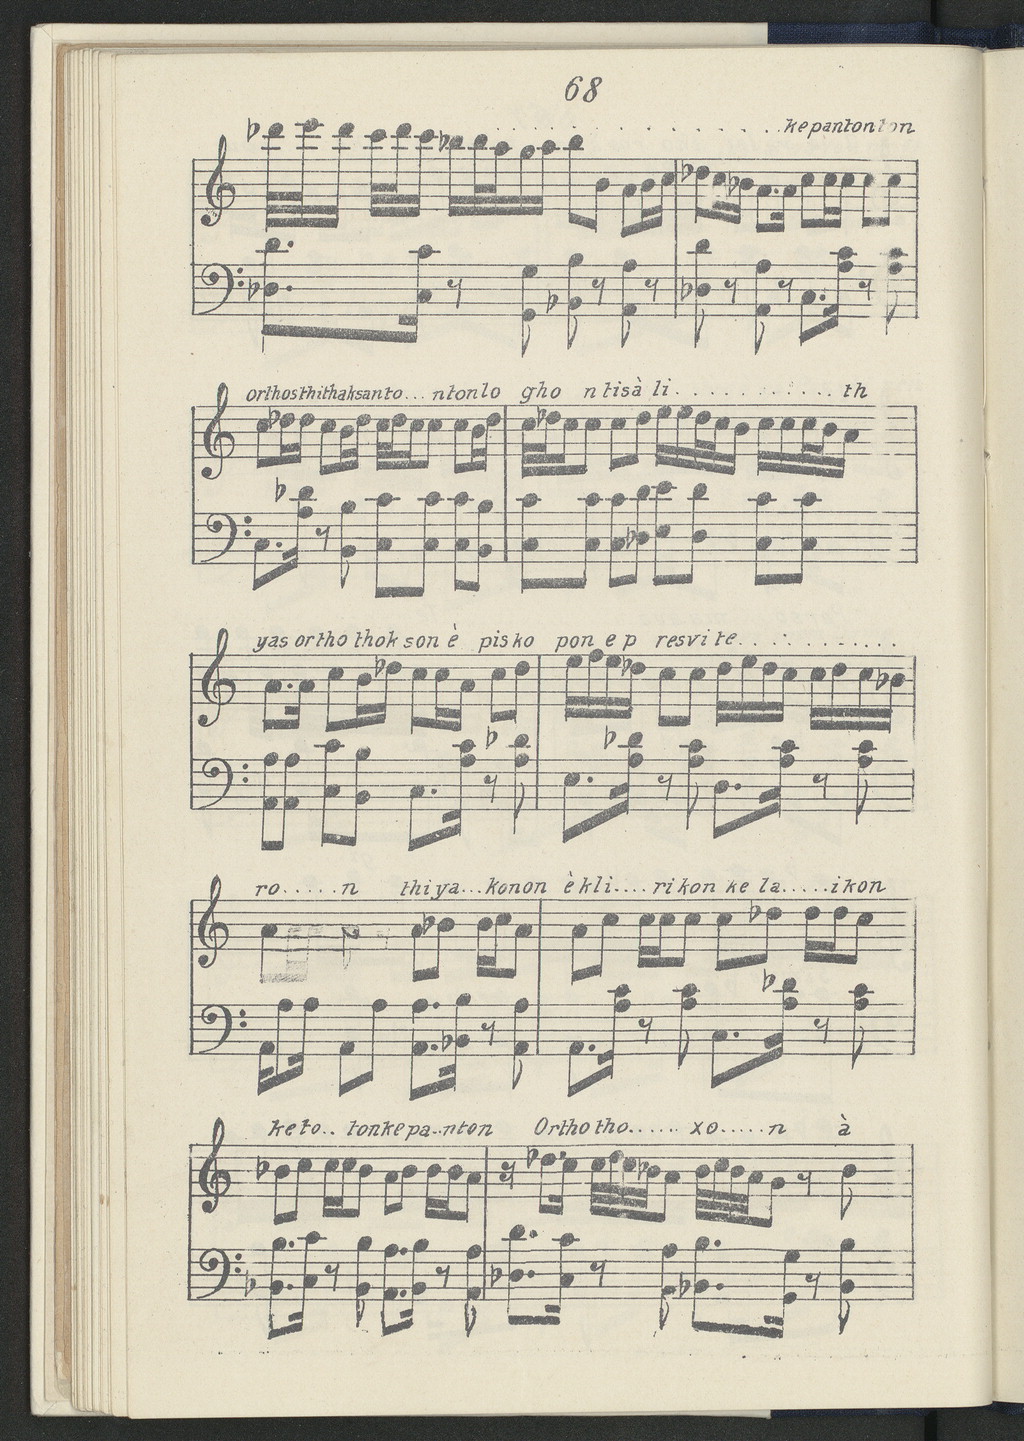 68
. . . . . . . . . . . . . kepantonton
orthosthithaksanto... ntonlo gho ntisà li. . . . . . . . . . . . th
yas ortho thok son è pisko pon e p resvi te. . . . . . . . . . .
ro.....n thiya...konon èkli....rikon ke la.....ikon
keto.. tonkepa..nton Orthotho...... xo.....n à